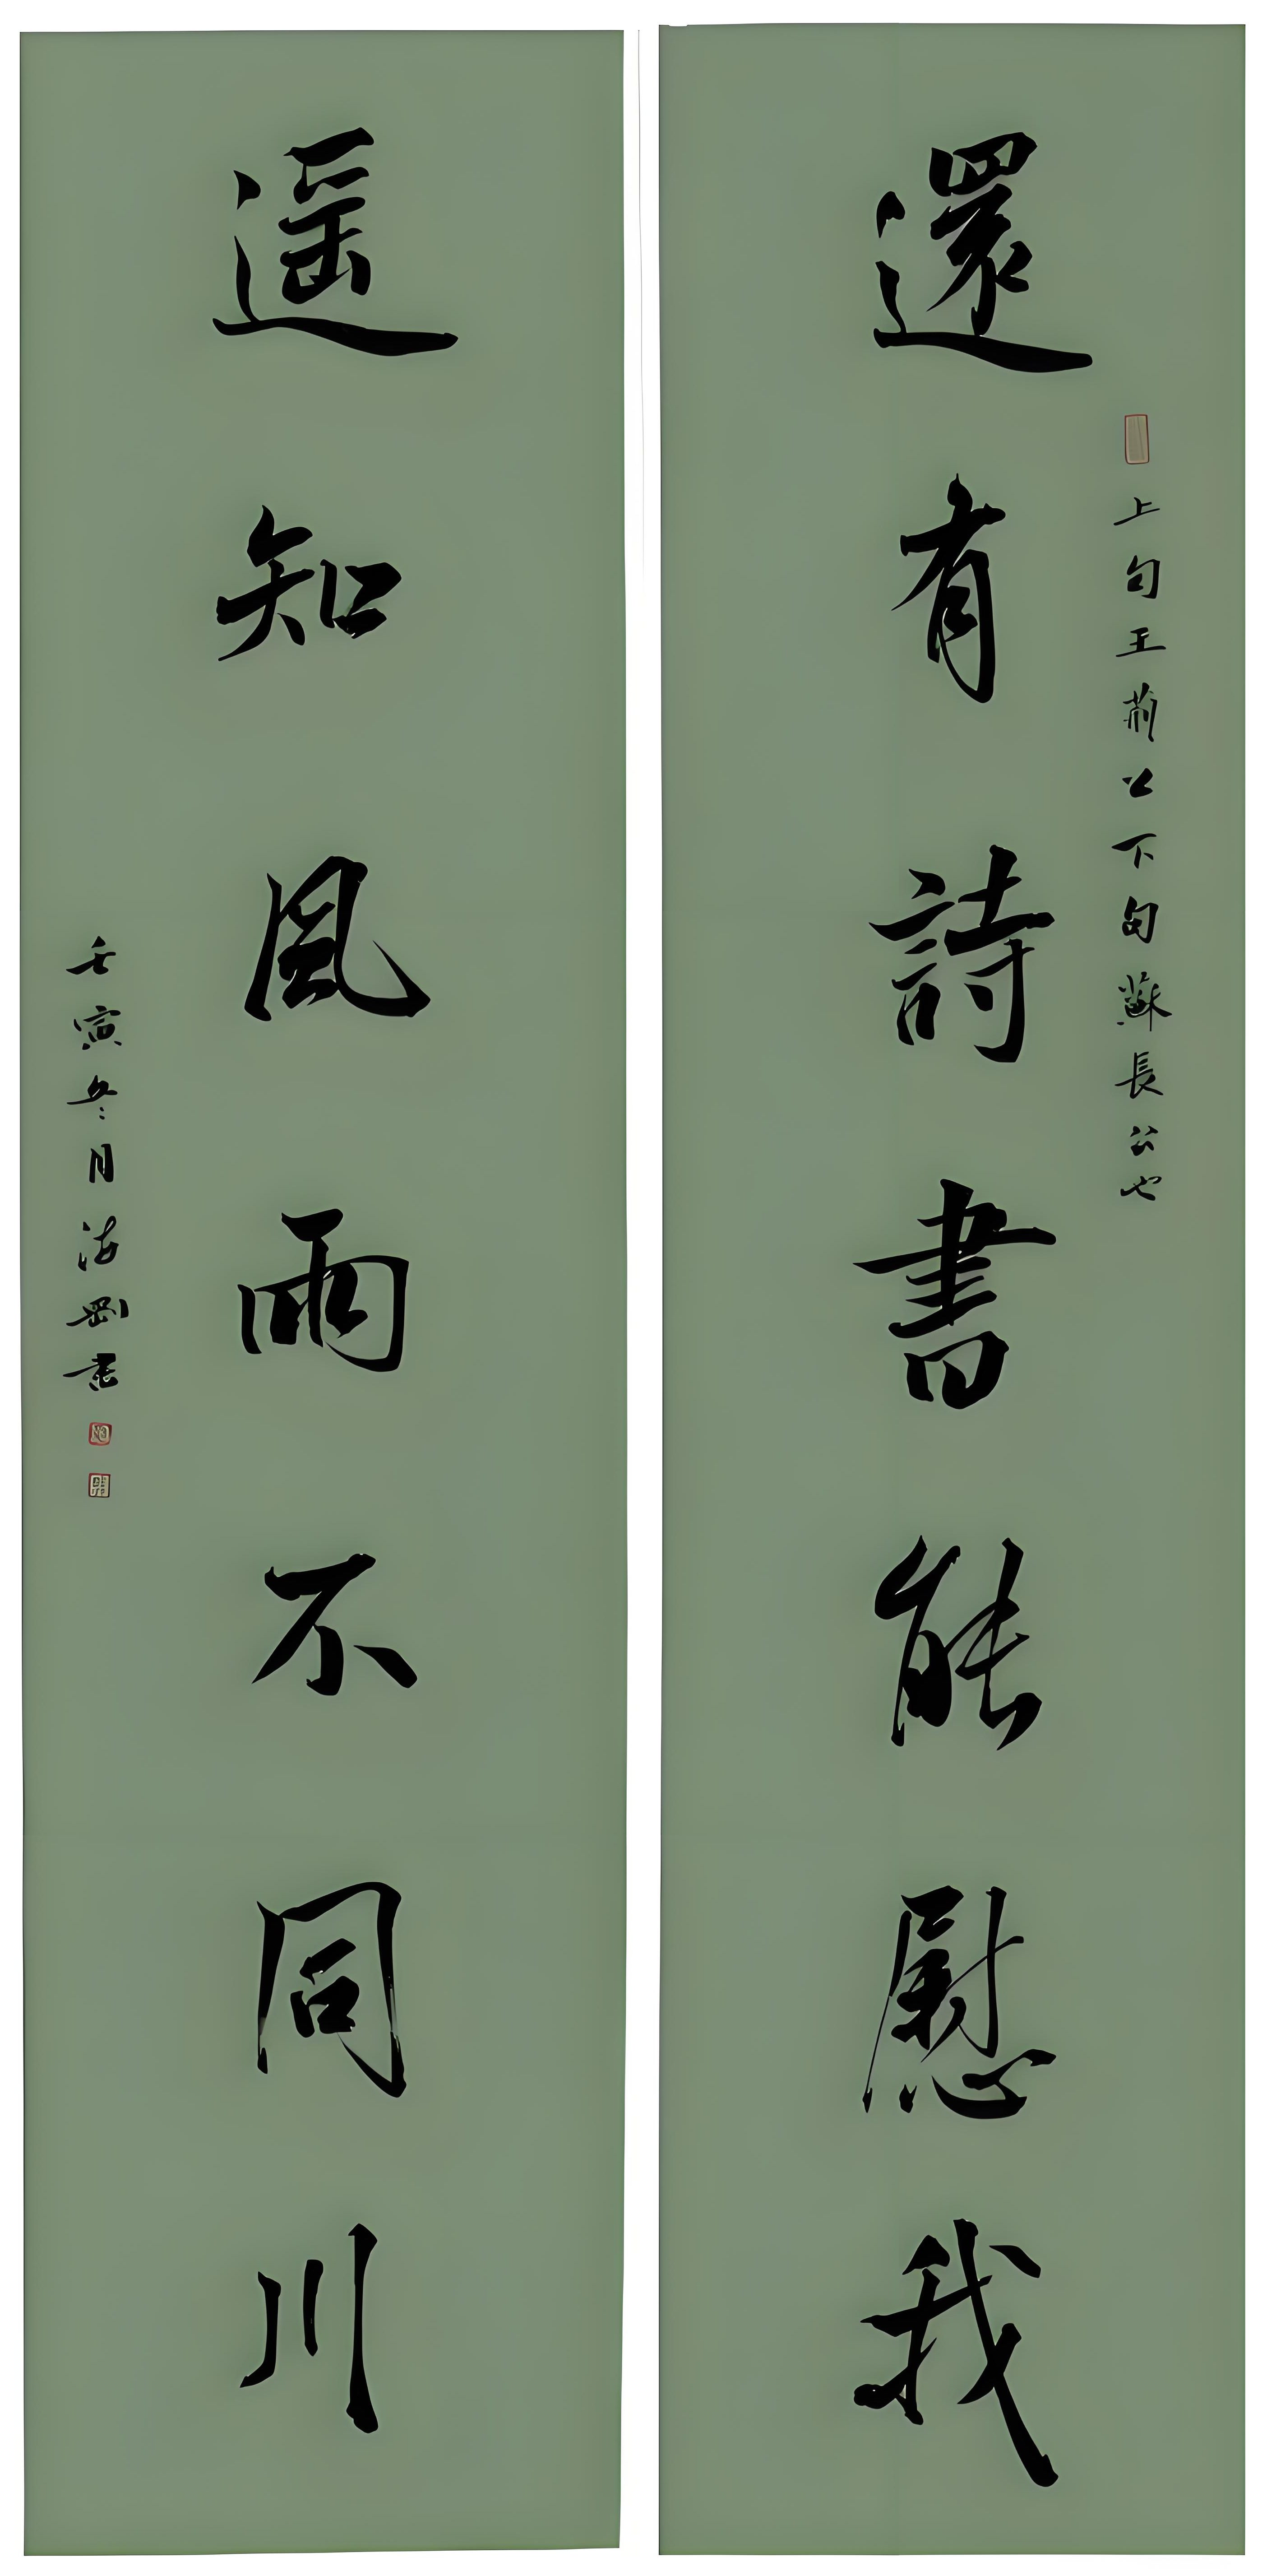 還有詩書能慰我
上句王荊公下句蘇長公也
遥知風雨不同川
壬寅冬月海剛書